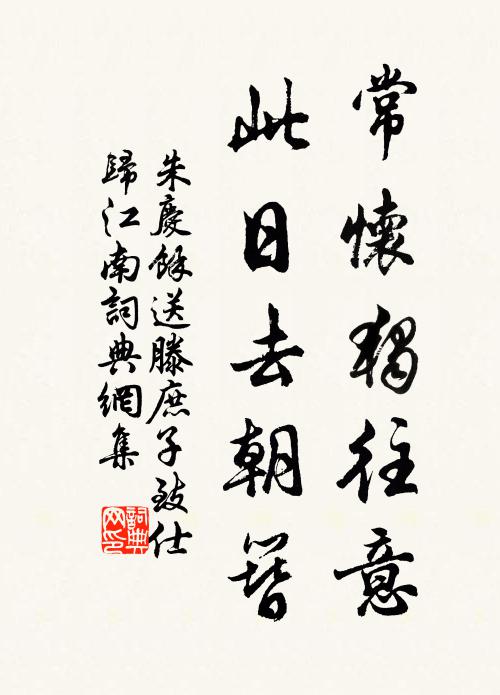 常懷獨往意
此日去朝簪
朱慶餘送滕庶子致仕
歸江南詞典網集
詞典网印